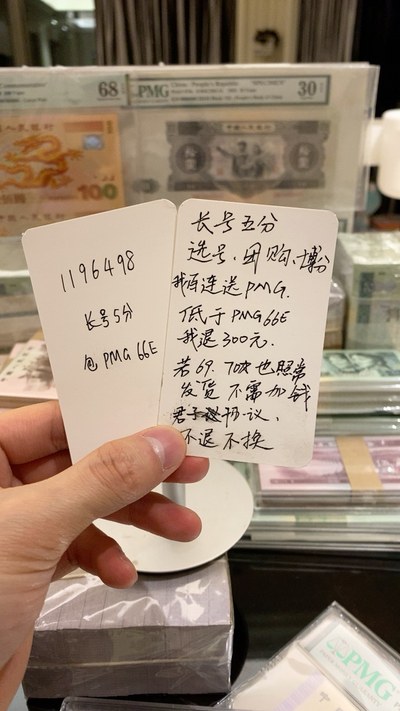 68
PMG
30
100
1196498
长号5分
包PMG 66E
长号五分
选号、团购、博分
我自连送PMG.
低于PMG66E
我退300元.
若69.70次也照常
发货 不需加钱
君子协议、
不退不换
PMG